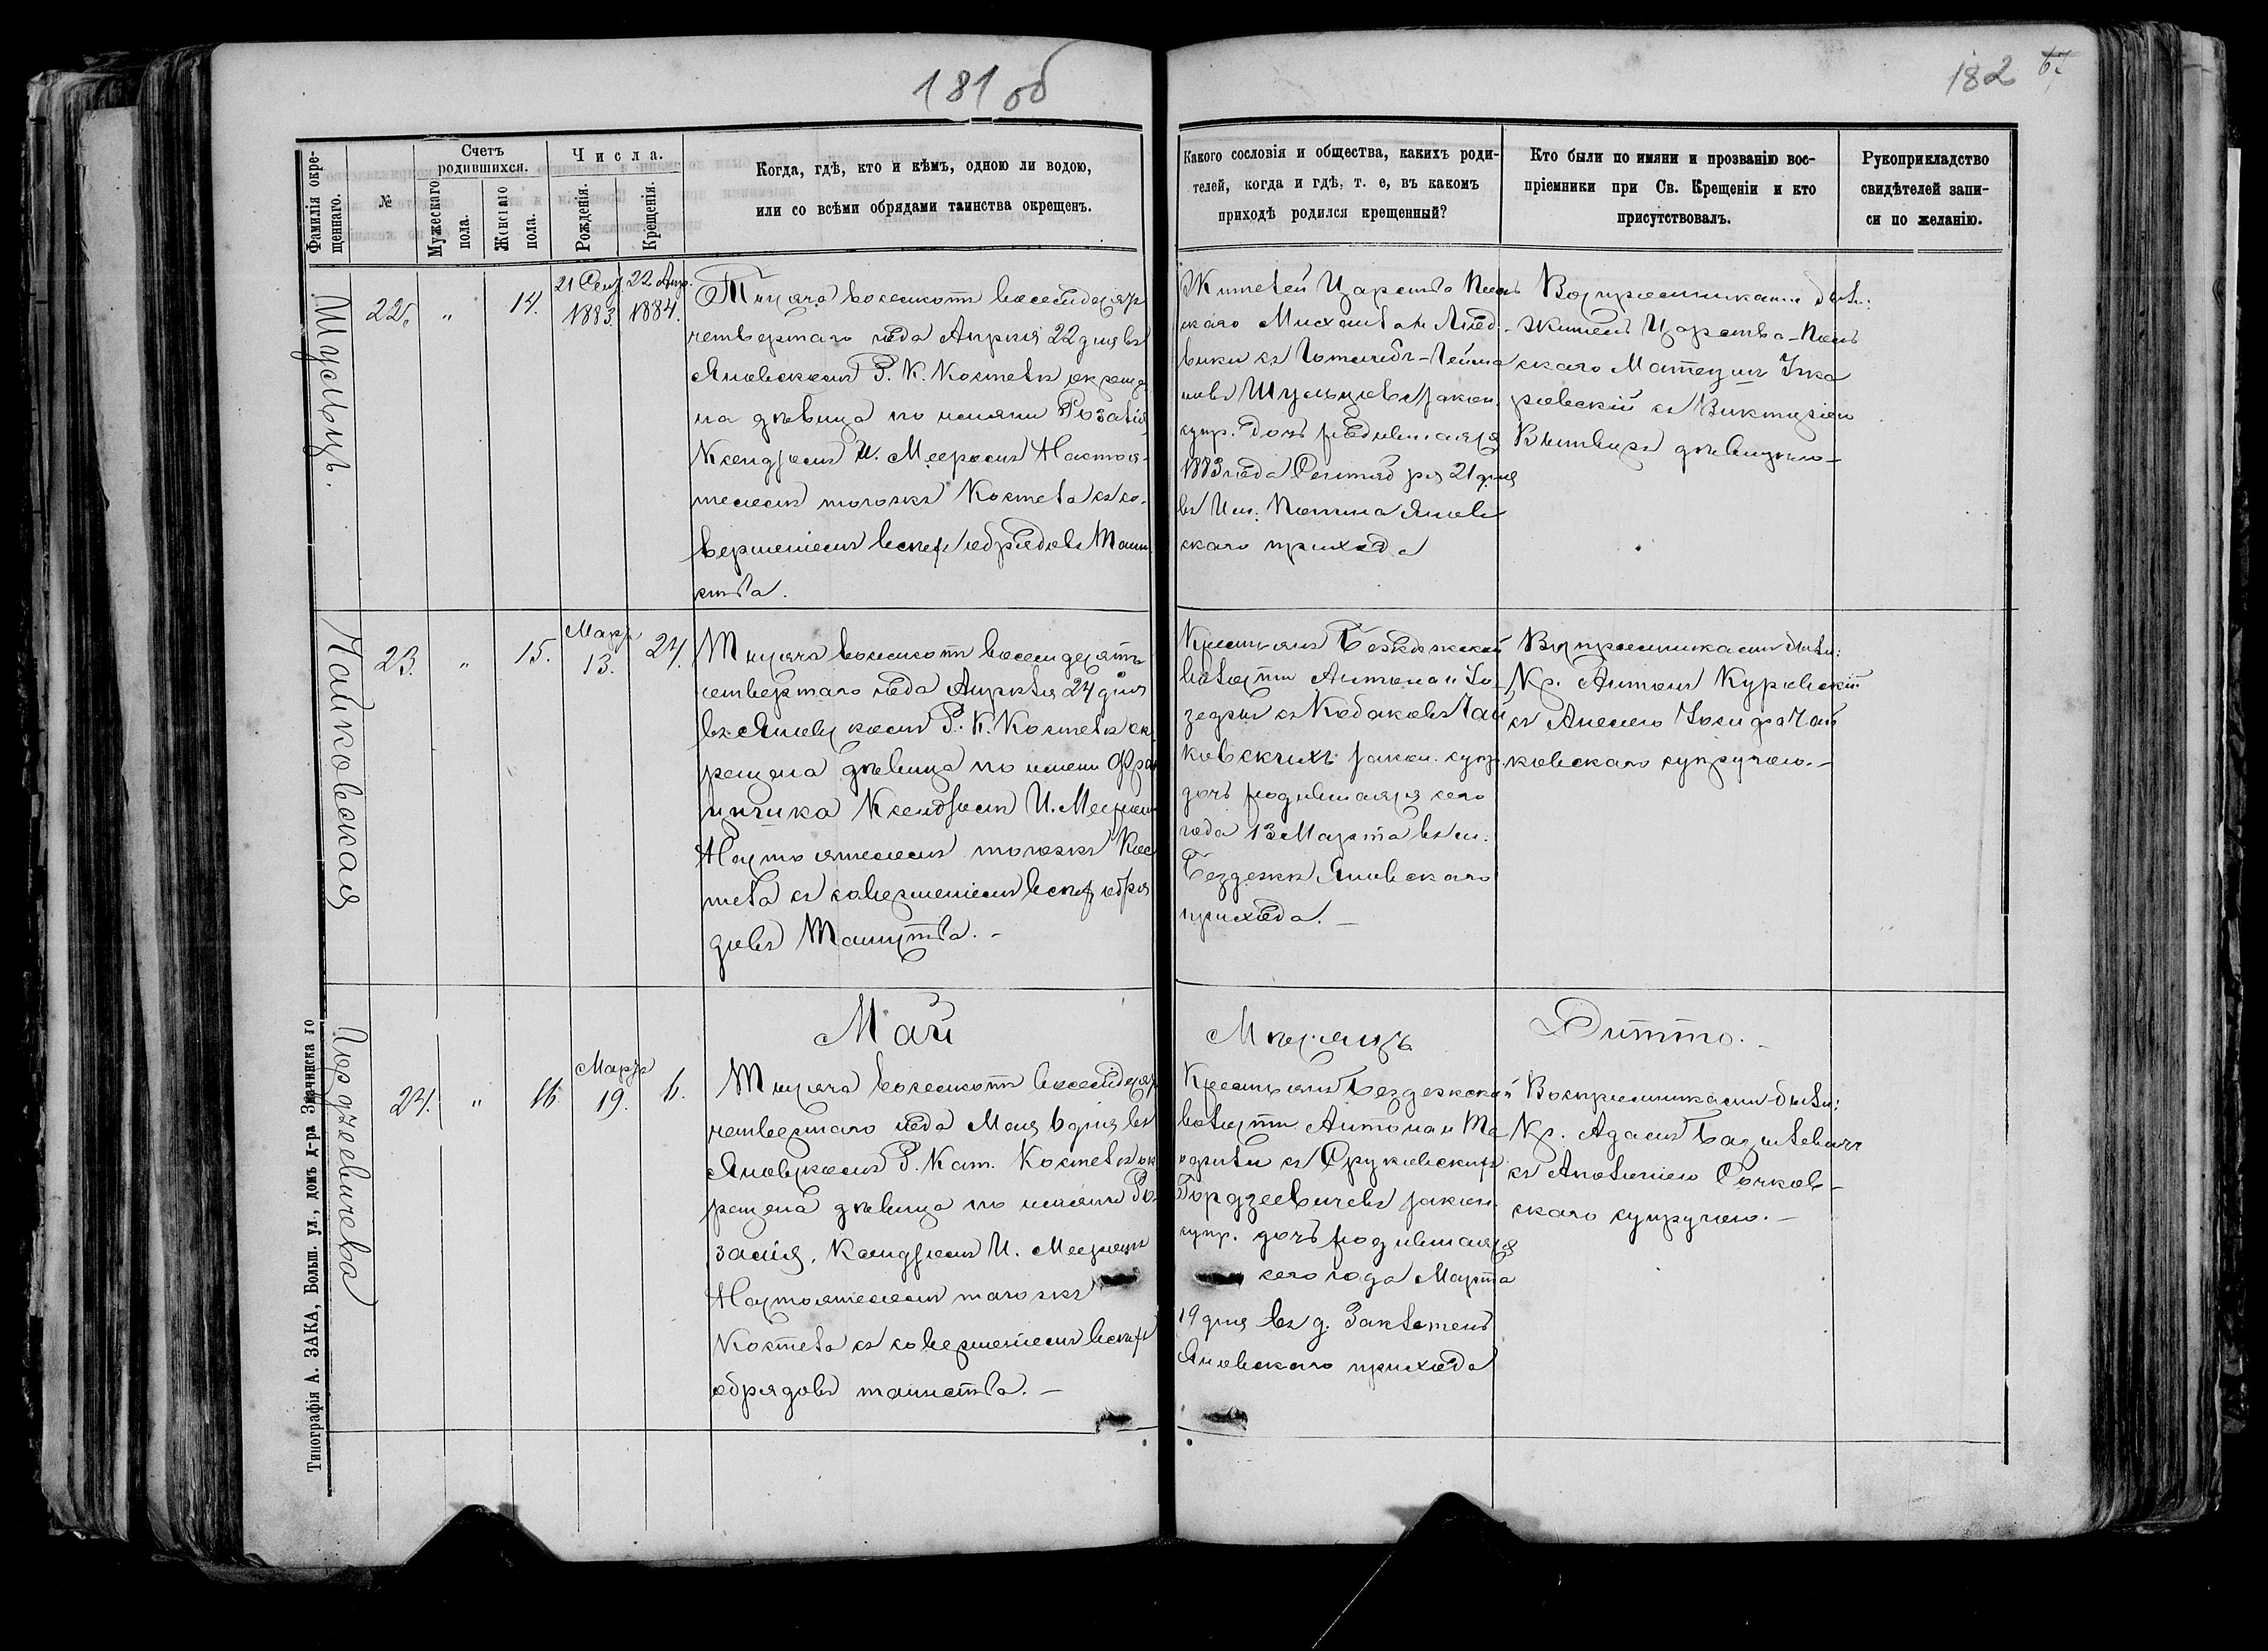 181 об
182 67
Фамилія окре-
щеннаго.
№
Счетъ
родившихся.
Мужескаго
пола.
Женскаго
пола.
Числа.
Рожденія.
Крещенія.
Когда, гдѣ, кто и кѣмъ, одною ли водою,
или со всѣми обрядами таинства окрещенъ.
Какого сословія и общества, какихъ роди-
телей, когда и гдѣ, т. е, въ какомъ
приходѣ родился крещенный?
Кто были по имяни и прозванію вос-
пріемники при Св. Крещеніи и кто
присутствовалъ.
Рукоприкладство
свидѣтелей запи-
си по желанію.
Шульцъ.
22.
"
14.
21 Сен.
1883.
22 Апр.
1884.
Тысяча восемсотъ восемдесятъ
четвертаго года Апрѣля 22 дня въ
Яновскомъ Р. К. Костелѣ окреще
на дѣвица по имяни Розалія
Ксендзомъ И. Настоя-
телемъ тогожъ Костела съ со-
вершеніемъ всѣхъ обрядовъ Таин
ства.
Жителей Царства Поль
скаго Михаила и Люд-
вики съ
Шульцовъ закон.
супр. дочь родившаяся
1883 года Сентября 21 дня
въ Им. Янов
скаго прихода
Воспріемниками были:
Житель Царства-Поль
скаго Матеушъ
съ Викторіею
дѣвицею-
Чайковская
23.
"
15.
Март
13.
24.
Тысяча восемсотъ восемдесятъ
четвертаго года Апрѣля 24 дня
въ Яновскомъ Р. К. Костелѣ ок
рещена дѣвица по имени Фран
цишка Ксендзомъ И.
Настоятелемъ тогожъ Кос
тела съ совершеніемъ всѣхъ обря
довъ Таинства. -
Крестьянъ Бездежской
волости Антона и Іо-
зефы съ Кобаковъ Чай
ковскихъ закон. супр.
дочь родившаяся сего
года 13 Марта въ м.
Бездежѣ Яновскаго
прихода. -
Воспріемниками были:
Кр. Антонъ Куровскій
съ Анелею Іосифа Чай
ковскаго супругою. -
Гордзеевичева
24.
"
16.
Март
19.
6.
Май
Тысяча восемсотъ восемдесятъ
четвертаго года Мая 6 дня въ
Яновскомъ Р. Кат. Костелѣ ок
рещена дѣвица по имяни Ро-
залія, Ксендзомъ И.
Настоятелемъ тогожъ
Костела съ совершеніемъ всѣхъ
обрядовъ таинства. -
Мѣсяцъ
Крестьянъ Бездежской
волости Антона и
съ
Гордзеевичевъ закон.
супр. дочь родившаяся
сего года Марта
19 дня въ д.
Яновскаго прихода
Дитто. -
Воспріемниками были:
Кр. Адамъ Базылевичъ
съ Аполоніею Сачков-
скаго супругою. -
Типографія А. ЗАКА, Больш. ул., домъ д-ра Значинскаго